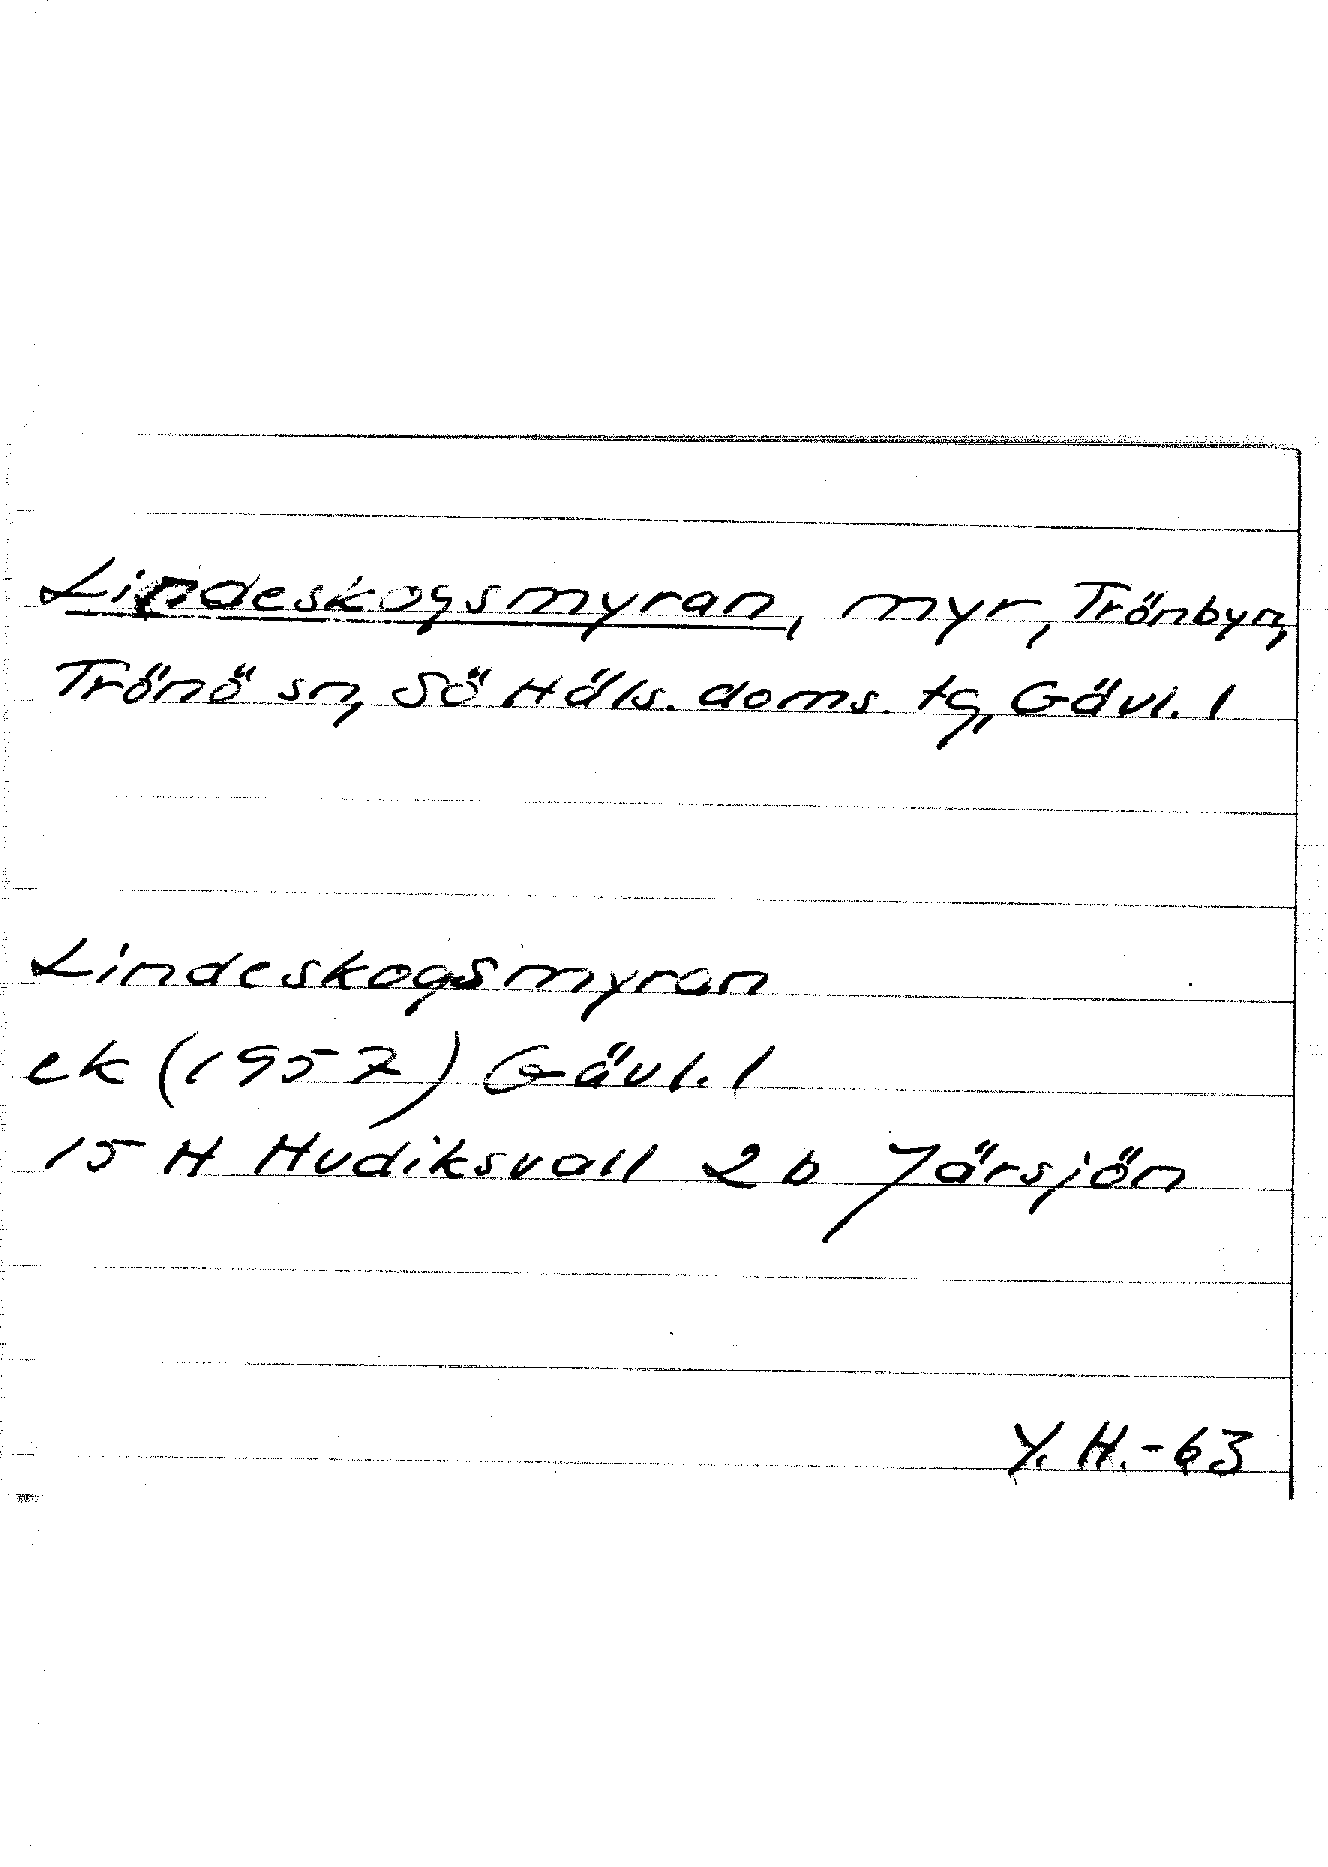 Lindeskogsmyran, myr, Trönbyn,
Trönö sn, Sö Häls. doms. tg, Gävl. l
Lindeskogsmyran
ek (1957) Gävl. l
15 H Hudiksvall 2 b Järsjön
Y. H. - 63